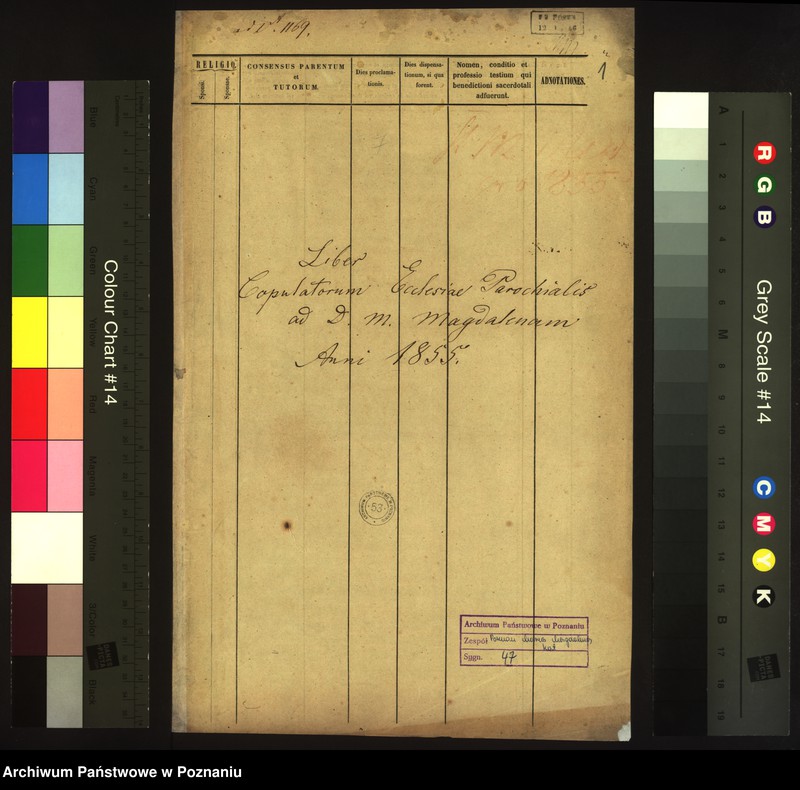 RELIGIO
Sponsi.
Sponsae.
CONSENSUS PARENTUM
et
TUTORUM.
Dies proclama-
tionis.
Dies dispensa-
tionum, si quæ
forent.
Nomen, conditio et
professio testium qui
benedictioni sacerdotali
adfuerunt.
ADNOTATIONES.
1
1855
Liber
Copulatorum Ecclesiae Parochialis
ad D. M. Magdalenam
Anni 1855.
53
Archiwum Państwowe w Poznaniu
Zespół
Sygn. 47
Colour Chart #14
Blue
Cyan
Green
Yellow
Red
Magenta
White
3/Color
Black
Grey Scale #14
R
G
B
C
M
Y
K
A
1
2
3
4
5
6
M
8
9
10
11
12
13
14
15
B
17
18
19
Archiwum Państwowe w Poznaniu